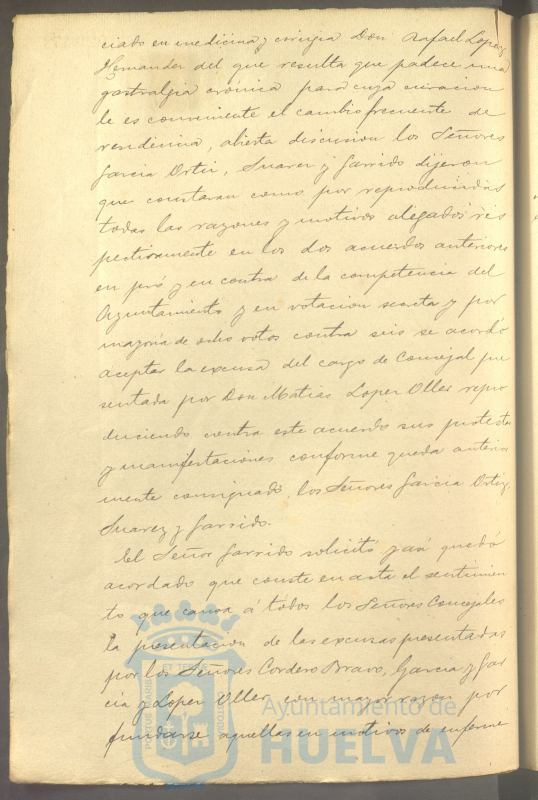 ciado en medicina y cirugia Don Rafael Lopez
Hernandez del que resulta que padece una
gastralgia crónica para cuya curacion
le es conveniente el cambio frecuente de
residencia, abierta discusion los Señores
Garcia Ortiz, Suarez y Garrido dijeron
que constaran como por reproducidas
todas las razones y motivos alegados res
pectivamente en los dos acuerdos anteriores
en pró y en contra de la competencia del
Ayuntamiento y en votacion secreta y por
mayoria de ocho votos contra seis se acordó
aceptar la excusa del cargo de Concejal pre
sentada por Don Matias Lopez Oller repro
duciendo contra este acuerdo sus protestas
y manifestaciones conforme queda anterior
mente consignado, los Señores Garcia Ortiz,
Suarez y Garrido.
El Señor Garrido solicitó y asi quedó
acordado que conste en acta el sentimien
to que causa á todos los Señores Concejales
la presentacion de las excusas presentadas
por los Señores Cordero Bravo, Garcia y Gar
cia y Lopez Oller con mayor razon por
fundarse aquellas en motivos de enferme
Ayuntamiento de
HUELVA
PORTUS MARIS
ET TERRAE
CUSTODIA